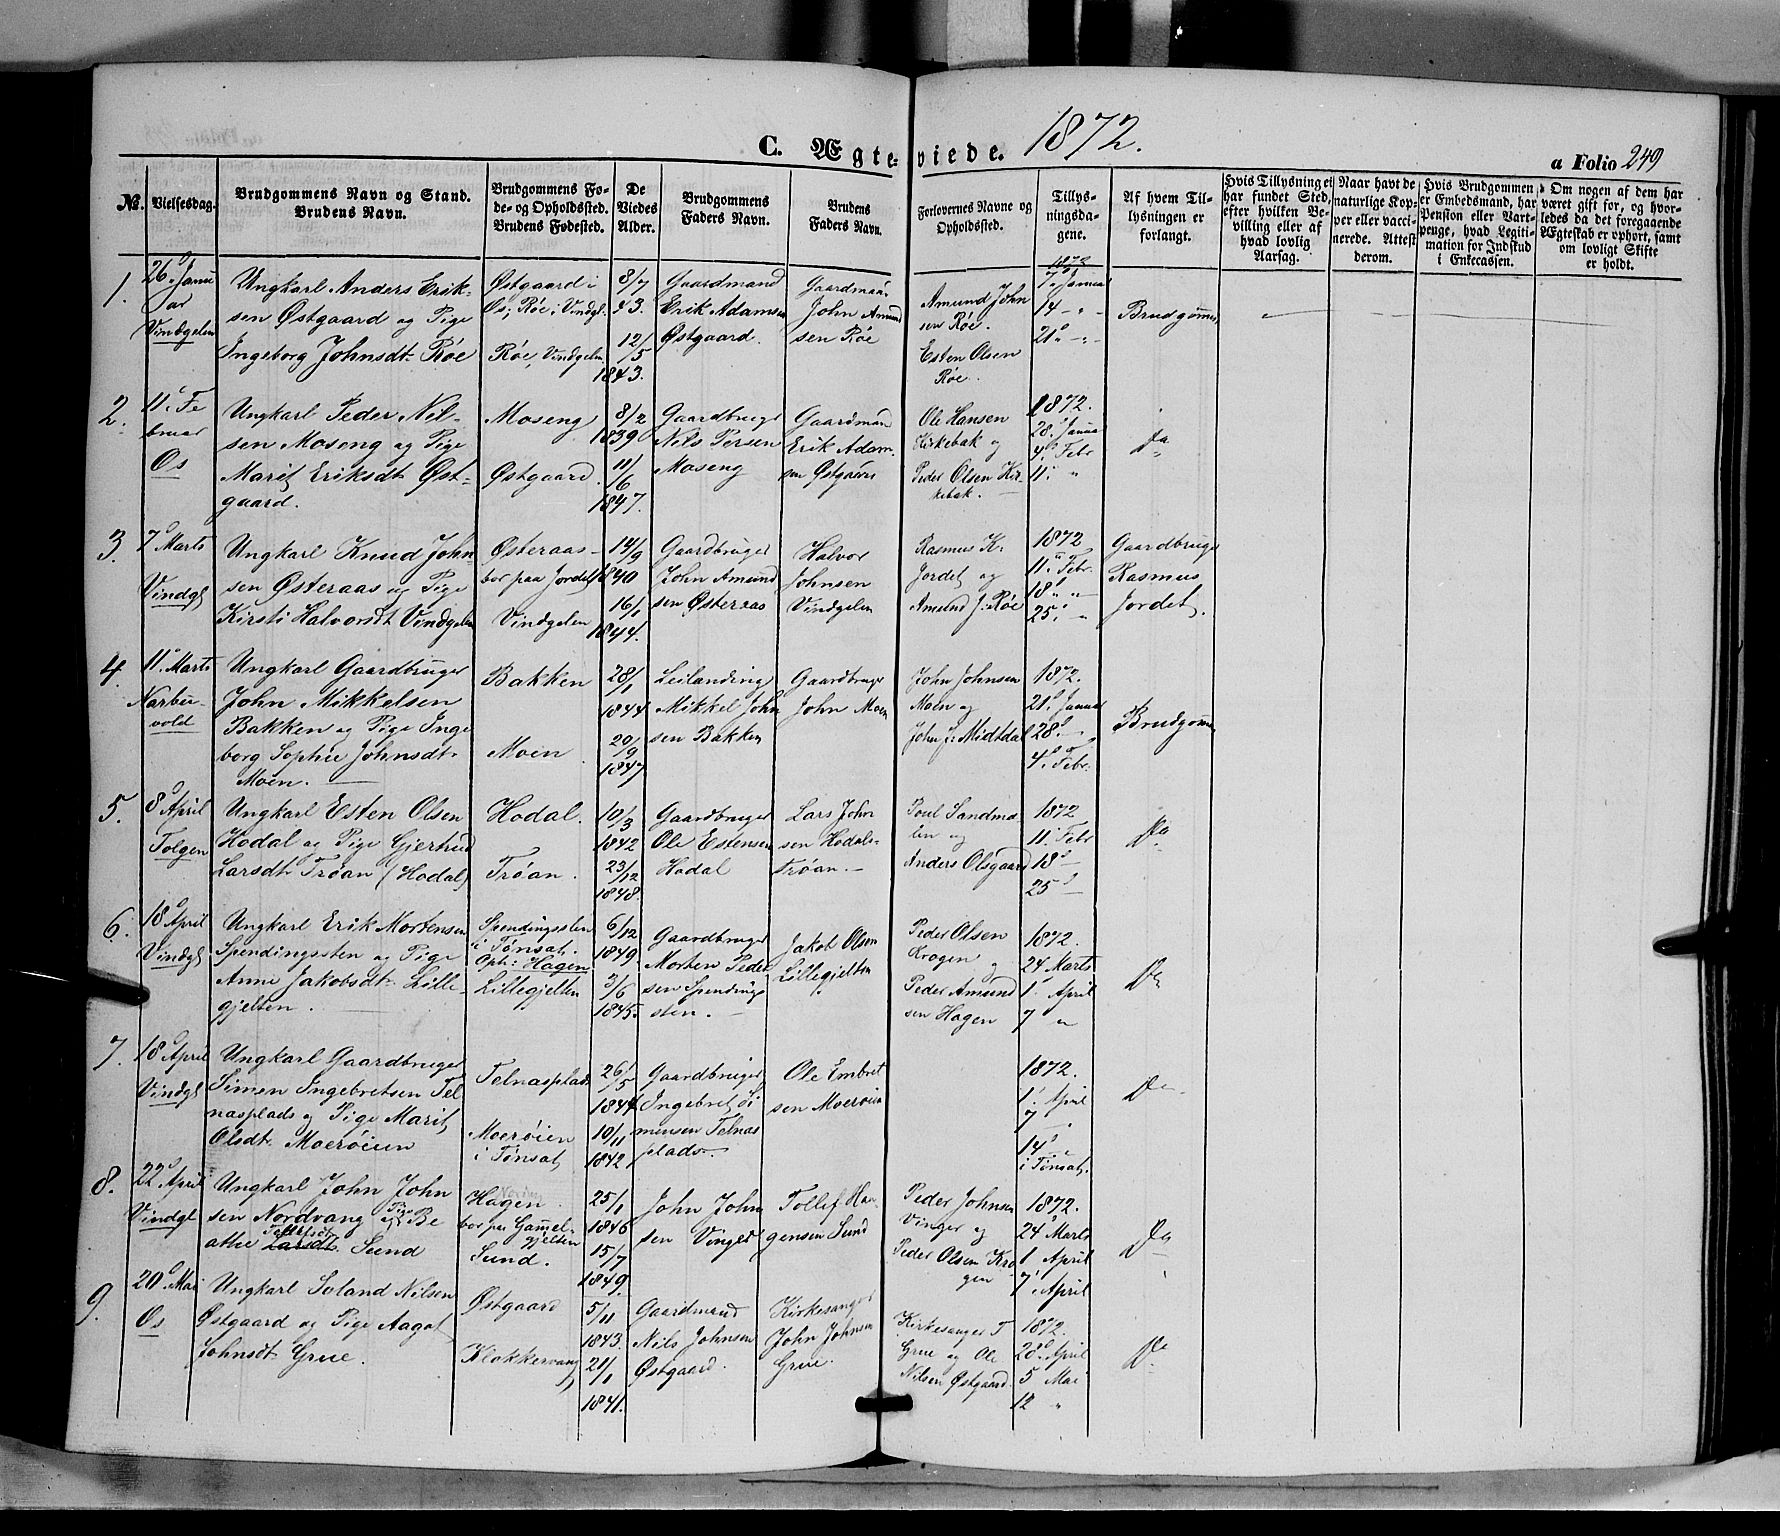 C. Ægteviede. 1872.
a Folio 249
№.
Vielsesdag.
Brudgommens Navn og Stand.
Brudens Navn.
Brudgommens Fø-
de- og Opholdssted.
Brudens Fødested.
De
Viedes
Alder.
Brudgommens
Faders Navn.
Brudens
Faders Navn.
Forlovernes Navne og
Opholdssted.
Tillys-
ningsda-
gene.
Af hvem Til-
lysningen er
forlangt.
Hvis Tillysning ei
har fundet Sted,
efter hvilken Be-
villing eller af
hvad lovlig
Aarsag.
Naar havt de
naturlige Kop-
per eller vacci-
nerede. Attest
derom.
Hvis Brudgommen
er Embedsmand, har
Pension eller Vart-
penge, hvad Legiti-
mation for Indskud
i Enkecassen.
Om nogen af dem har
været gift før, og hvor-
ledes da det foregaaende
Ægteskab er ophørt, samt
om lovligt Skifte
er holdt.
1.
26. Janu
ar
Vindgelen
Ungkarl Anders Erik-
sen Østgaard og Pige
Ingeborg Johnsdt. Røe
Østgaard i
Os; Røe i Vindgl.
Røe, Vindgelen
8/7
43.
12/5
1843.
Gaardmand
Erik Adamsen
Østgaard.
Gaardman
John Amund
sen Røe
Amund John
sen Røe.
Esten Olsen
Røe.
1872
7. Januar
14 - "
21. - " -
Brudgomen
2.
11. Fe
bruar
Os
Ungkarl Peder Nil-
sen Moseng og Pige
Marit Eriksdt. Øst-
gaard.
Moseng
Østgaard.
8/2
1839
11/6
1847.
Gaardbruger
Nils Persen
Moseng
Gaardmand
Erik Adam-
sen Østgaard
Ole Hansen
Kirkebak og
Peder Olsen Kir-
kebak.
1872.
28. Janua
4. Febr
11. "
Do
3.
7 Marts
Vindgl
Ungkarl Knud John-
sen Østeraas og Pige
Kirsti Halvorsdt Vindgelen
Østeraas -
bor paa Jordet
Vindgelen
14/9
1840
16/1
1844.
Gaardbruger
John Amund
sen Østeraas
Halvor
Johnsen
Vindgelen
Rasmus K.
Jordet og
Amund J: Røe
1872
11. Febr.
18. "
25. "
Gaardbruger
Rasmus
Jordet.
4.
11. Marts
Narbu-
vold
Ungkarl Gaardbruger
John Mikkelsen
Bakken og Pige Inge
borg Sophie Johnsdt.
Moen.
Bakken
Moen
28/1
1844
20/9
1847
Leilanding
Mikkel John
sen Bakken
Gaardbruger
John Moen
John Johnsen
Moen og
John J: Midtdal
1872.
21. Januar
28. -
4. Febr.
Brudgomen
5.
8 April
Tolgen
Ungkarl Esten Olsen
Hodal og Pige Gjertrud
Larsdt Trøan (Hodal)
Hodal.
Trøan.
10/3
1842
23/12
1848.
Gaardbruger
Ole Estensen
Hodal
Lars John
sen Hodals-
trøan. -
Poul Sandmæ-
len og
Anders Olsgaard
1872
11. Febr
18
25
Do
6.
18 April
Vindgl
Ungkarl Erik Mortensen
Spendingssten og Pige
Anne Jakobsdt. Lille-
gjelten.
Spendingssten
i Tønsat.
Oph: Hagen
Lillegjelten
6/12
1849.
3/6
1845.
Gaardbruger
Morten Peder
sen Spendings
sten. -
Jakob Olsen
Lillegjelten
Peder Olsen
Krogen og
Peder Amund
sen Hagen
1872.
24 Marts
1. April
7 "
Do
7.
18 April
Vindgl
Ungkarl Gaardbruger
Simen Ingebretsen Tel
nasplads og Pige Marit
Olsdt. Moerøien
Telnasplads
Moerøien
i Tønsat
26/5
1844
10/11
1842
Gaardbruger
Ingebret Si
mensen Telnas
plads.
Ole Embret
sen Moerøien
1872.
1. April
7 -
14. -
i Tønsat.
Do
8.
22 April
Vindgl
Ungkarl John John
sen Nordvang og Pige Be
athe Tollefsdt. Larsdt. Sund
Hagen
bor paa Gammel-
gjelten
Sund.
25/1
1846
15/7
1849.
John John
sen Vinger
Tollef Ha-
gensen Sund
Peder Johnsen
Vinger og
Peder Olsen Kro
gen
1872.
24 Marts
1 April
7. April
Do
9.
20 Mai
Os
Ungkarl Soland Nilsen
Østgaard og Pige Aagot
Johnsdt. Grue.
Østgaard
Klokkervang
5/11
1843.
21/1
1841.
Gaardmand
Nils Johnsen
Østgaard.
Kirkesanger
John Johnsen
Grue.
Kirkesanger T
Grue og Ole
Nilsen Østgaard.
1872.
28. April
5 Mai
12 "
Do